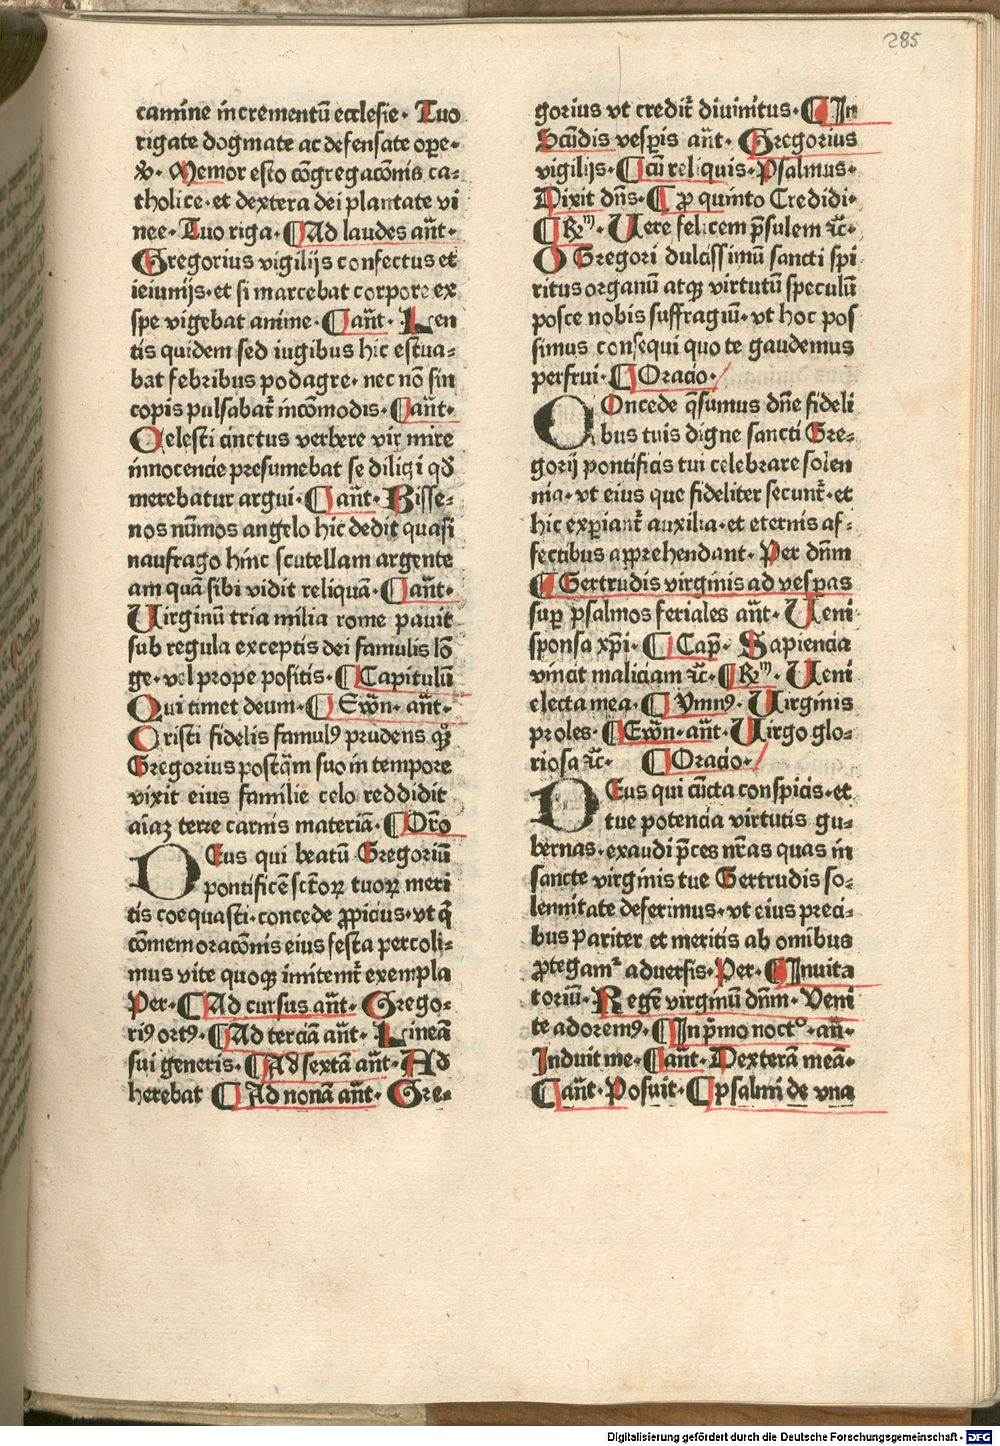 285
camine incrementū ecclesie· Tuo
rigate dogmate ac defensate ope⸗
ꝝ· Memor esto cōgregacōnis ca⸗
tholice· et dextera dei plantate vi
nee· Tuo riga· ¶ Ad laudes an̄t·
Gregorius vigilijs confectus et
ieiunijs· et si marcebat corpore ex
spe vigebat anime· ¶ an̄t· Len
tis quidem sed iugibus hic estua⸗
bat febribus podagre· nec nō sin
copis pulsabat᷑ incōmodis· ¶ an̄t·
Celesti cinctus verbere vir mire
innocencie presumebat se diligi qd̄
merebatur argui· ¶ an̄t· Bisse⸗
nos nūmos angelo hic dedit quasi
naufrago hinc scutellam argente
am quā sibi vidit reliquā· ¶ an̄t·
Uirginū tria milia rome pauit
sub regula exceptis dei famulis lō
ge· vel prope positis· ¶ Capitulū
Qui timet deum· ¶ Ewn̄· an̄t·
Cristi fidelis famulꝰ prudens qꝫ
Gregorius postq̄m suo in tempore
vixit eius familie celo reddidit
aīaꝫ terre carnis materiā· ¶ Or̄o
DEus qui beatū Gregoriū
pontificē sctōꝝ tuoꝝ meri
tis coequasti· concede ꝓpicius· vt q̄
cōmemoracōnis eius festa percoli⸗
mus vite quoqꝫ imitemr̄ exempla
Per· ¶ Ad cursus an̄t· Grego⸗
riꝰ ortꝰ· ¶ Ad terciā an̄t· Lineā
sui generis· ¶ Ad sextā an̄t· Ad
herebat ¶ Ad nonā an̄t· Gre⸗
gorius vt credit᷑ diuinitus· ¶ In
Scd̄is vesꝑis an̄t· Gregorius
vigilijs· ¶ cū reliquis· Psalmus·
Dixit dn̄s· ¶ ꝓ quinto Credidi·
¶ Rm̄· Uere felicem p̄sulem ⁊c̄·
O Gregori dulcissimū sancti spi
ritus organū atqꝫ virtutū speculū
posce nobis suffragiū· vt hoc pos
simus consequi quo te gaudemus
perfrui· ¶ Oracio·
COncede q̄sumus dn̄e fideli
bus tuis digne sancti Gre⸗
gorij pontificis tui celebrare solen
nia· vt eius que fideliter secunt᷑· et
hic experiant᷑ auxilia· et eternis af⸗
fectibus apprehendant· Per dn̄m
¶ Gertrudis virginis ad vesꝑas
suꝑ psalmos feriales an̄t· Ueni
sponsa xp̄i· ¶ Cap̄· Sapiencia
vincit maliciam ⁊c̄· ¶ Rm̄· Ueni
electa mea· ¶ Ymnꝰ· Uirginis
proles· ¶ Ewn̄· an̄t· Uirgo glo⸗
riosa ⁊c̄· ¶ Oracio·
DEus qui cūcta conspicis· et
tue potencia virtutis gu⸗
bernas· exaudi p̄ces nr̄as quas in
sancte virginis tue Gertrudis so⸗
lennitate deferimus· vt eius preci⸗
bus pariter et meritis ab omibus
ꝓtegam᷑ aduersis· Per· ¶ Inuita
toriū· Regē virginū dn̄m· Veni
te adoremꝰ· ¶ In p̄mo noctᵒ· an̄·
Induit me· ¶ an̄t· Dexterā meā·
¶ an̄t· Posuit· ¶ psalmi de vna
Digitalisierung gefördert durch die Deutsche Forschungsgemeinschaft - DFG